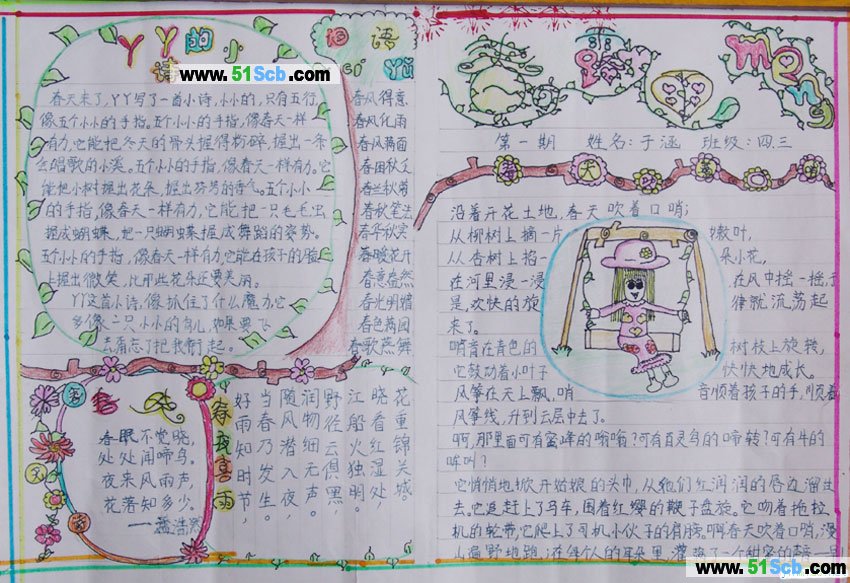 丫丫的小诗
www.51Scb.com
春天来了,丫丫写了一首小诗,小小的,只有五行,
像五个小小的手指。五个小小的手指,像春天一样
有力,它能把冬天的骨头握得粉碎,握出一条
会唱歌的小溪。五个小小的手指,像春天一样有力。它
能把小树握出花朵,握出芬芳的香气。五个小小
的手指,像春天一样有力,它能把一只毛毛虫,
握成蝴蝶,把一只蝴蝶握成舞蹈的姿势。
五个小小的手指,像春天一样有力,它能在孩子的脸
上握出微笑,比那些花朵还要美丽。
丫丫这首小诗,像抓住了什么魔力,它
多像一只小小的鸟儿,如果要飞
去,请忘了把我带起。
词语
Cí Yǔ
春风得意
春风化雨
春风满面
春困秋乏
春兰秋菊
春秋笔法
春华秋实
春暖花开
春意盎然
春光明媚
春色满园
春歌燕舞
春眠不觉晓,
处处闻啼鸟。
夜来风雨声,
花落知多少。
——孟浩然
春夜喜雨
好雨知时节,
当春乃发生。
随风潜入夜,
润物细无声。
野径云俱黑,
江船火独明。
晓看红湿处,
花重锦关城。
meng
第一期 姓名:于涵 班级:四三
沿着开花土地,春天吹着口哨;
从柳树上摘一片 嫩叶,
从杏树上掐一 朵小花,
在河里浸一浸 在风中摇一摇,于
是,欢快的旋 律就流荡起
来了。
哨音在青色的 树枝上旋转,
它鼓动着小叶子 快快地成长。
风筝在天上飘,哨 音顺着孩子的手,顺着
风筝线,升到云层中去了。
啊,那里面可有蜜蜂的嗡嗡?可有百灵鸟的啼转?可有牛的
哞叫?
它悄悄地掀开姑娘的头巾,从他们红润润的唇边溜出
去。它追赶上了马车,围着红缨的鞭子盘旋。它吻着拖拉
机的轮带,它爬上了司机小伙子的肩膀。啊春天吹着口哨,漫
山遍野地跑;在每个人的耳朵里,灌满了一个甜蜜的
www.51Scb.com